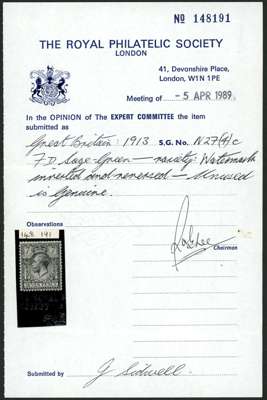 No 148191
THE ROYAL PHILATELIC SOCIETY
LONDON
41, Devonshire Place,
London, W1N 1PE
Meeting of - 5 APR 1989
In the OPINION of The EXPERT COMMITTEE the item
submitted as
Great Britain: 1913 S.G. No. N27(4)c
7D. Sage-Green — variety: Watermark
inverted and reversed — Unused
is Genuine.
Observations
148 191
Chairman
Submitted by G Sidwell.